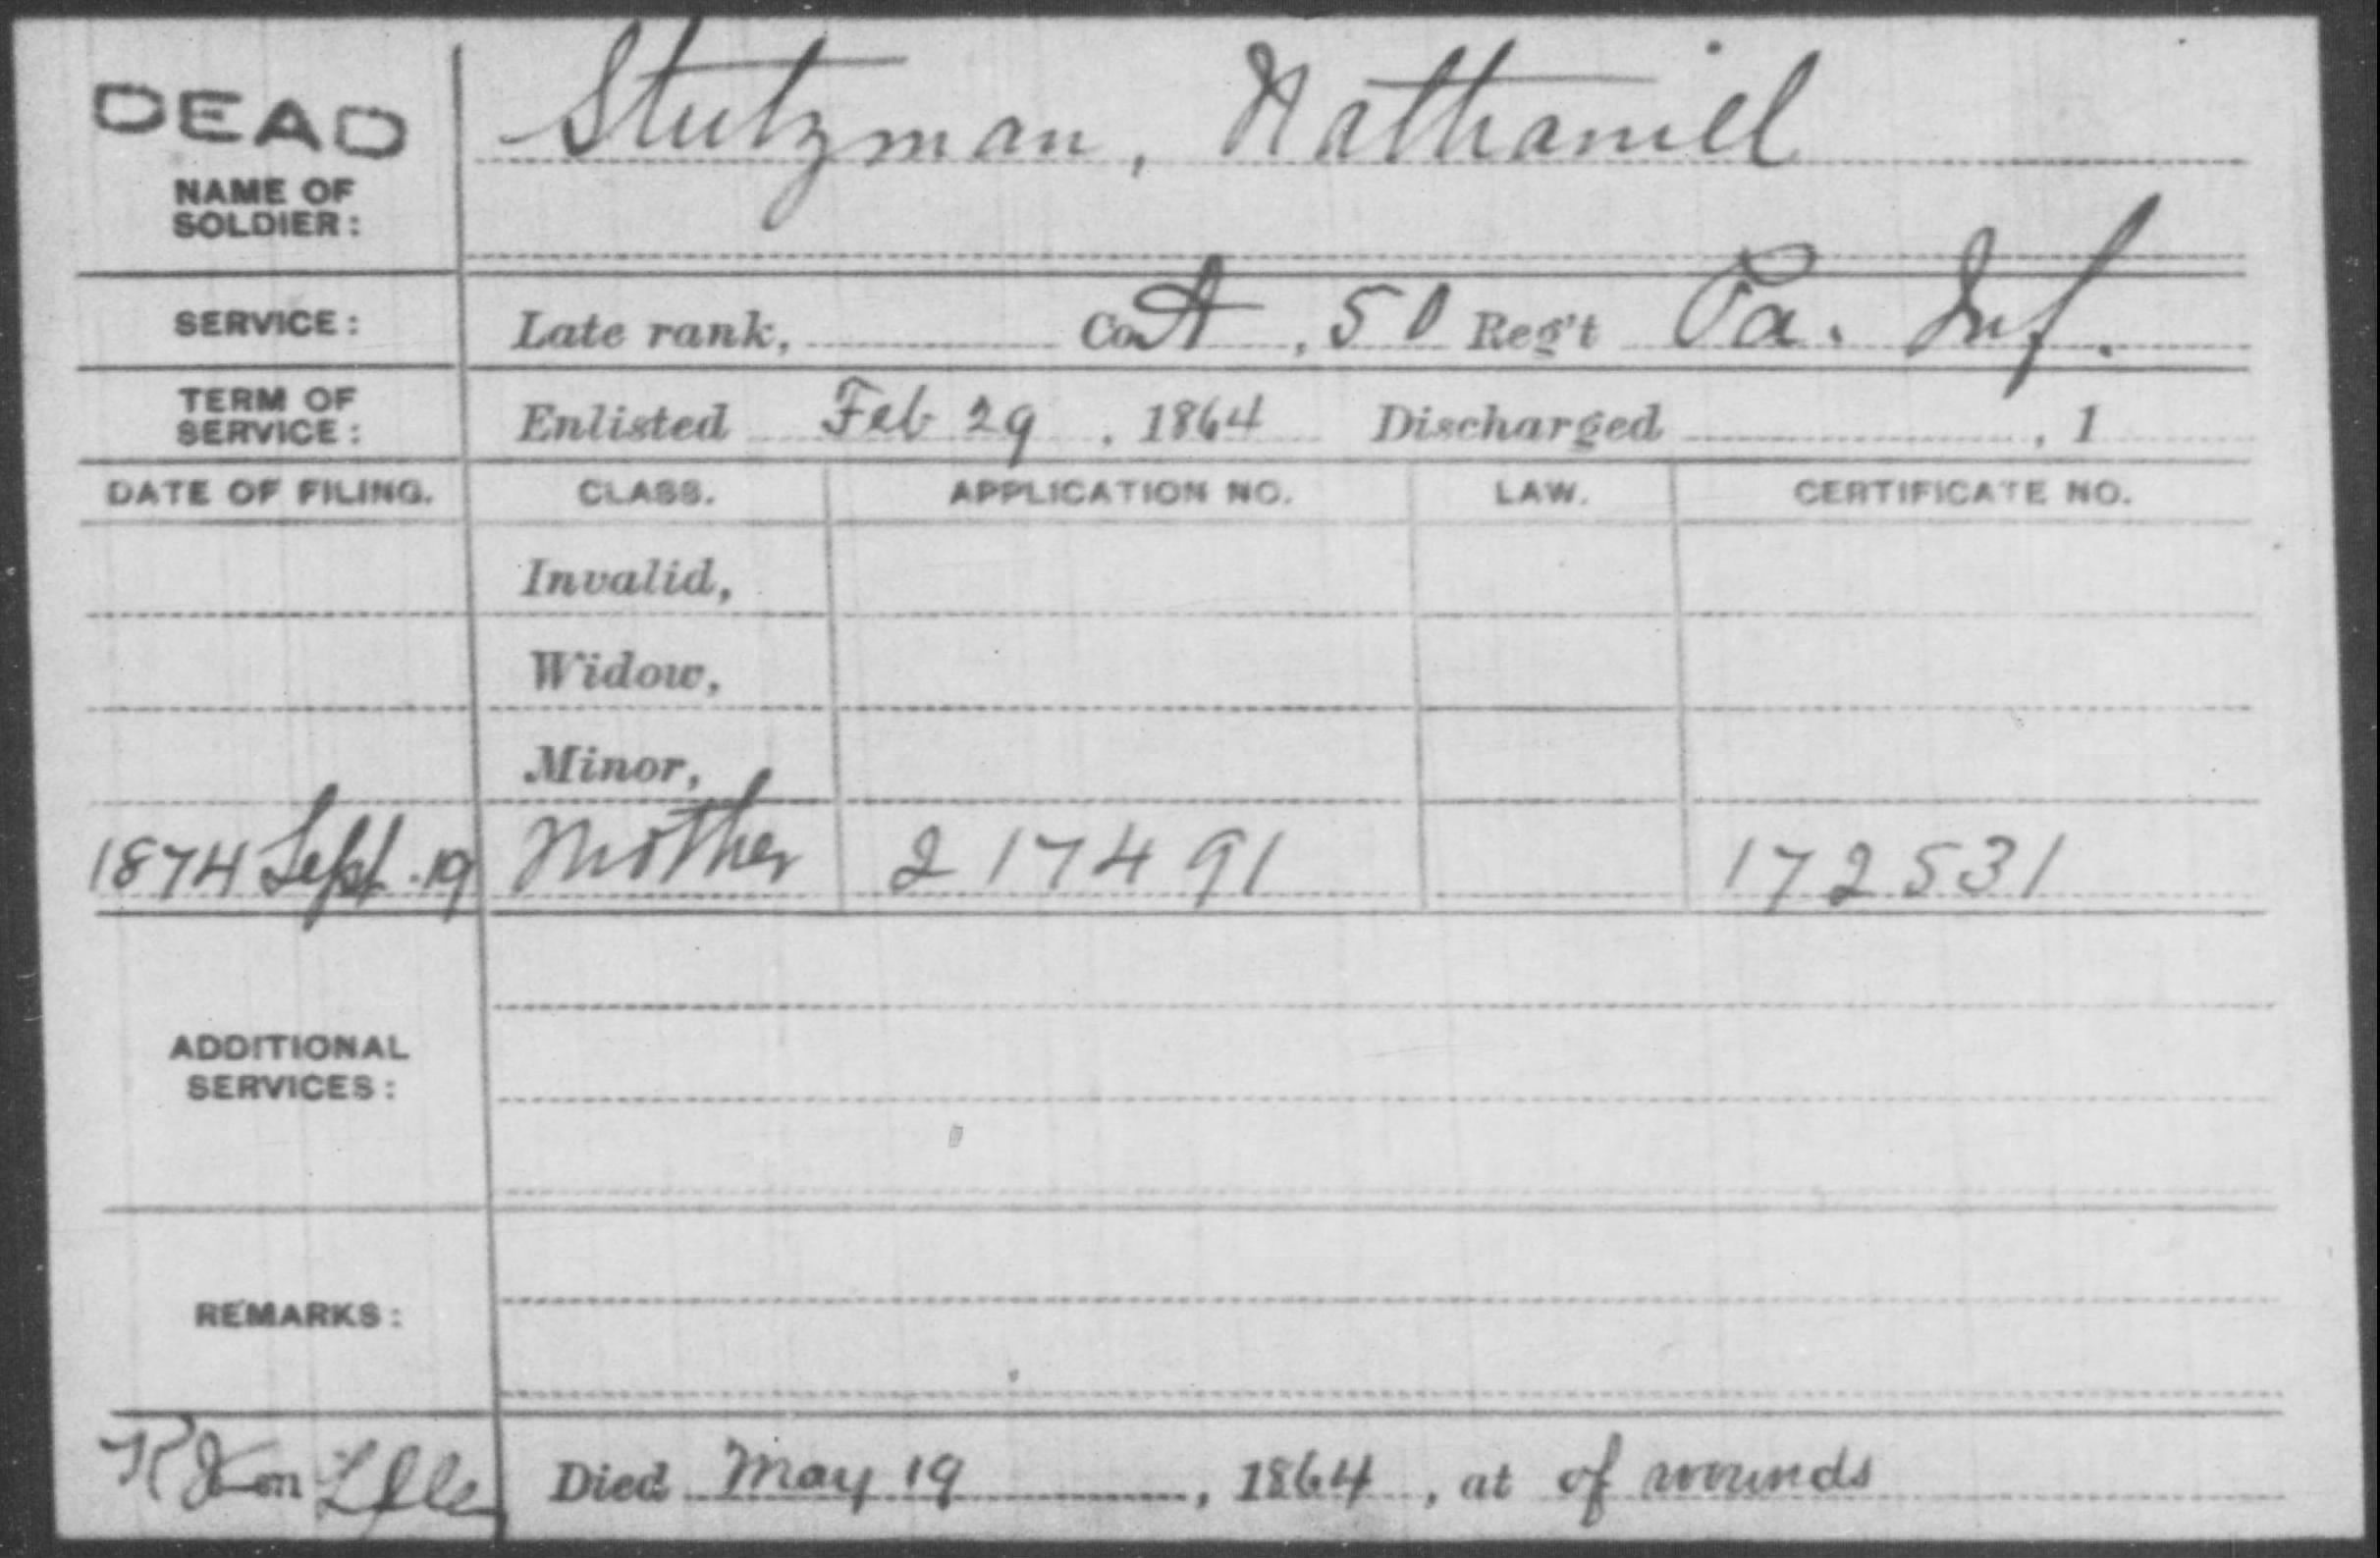 DEAD
Stutzman, Nathaniel
NAME OF
SOLDIER:
SERVICE: Late rank, Co. A, 50 Reg't Pa. Inf.
TERM OF
SERVICE: Enlisted Feb 29, 1864 Discharged , 1
DATE OF FILING. CLASS. APPLICATION NO. LAW. CERTIFICATE NO.
Invalid,
Widow,
Minor,
1874 Sept. 19 Mother 217491 172531
ADDITIONAL
SERVICES:
REMARKS:
Died May 19, 1864, at of wounds